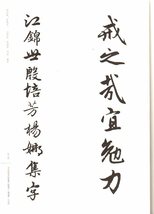 戒之哉宜勉力
江錦世殷培芳楊娜集字